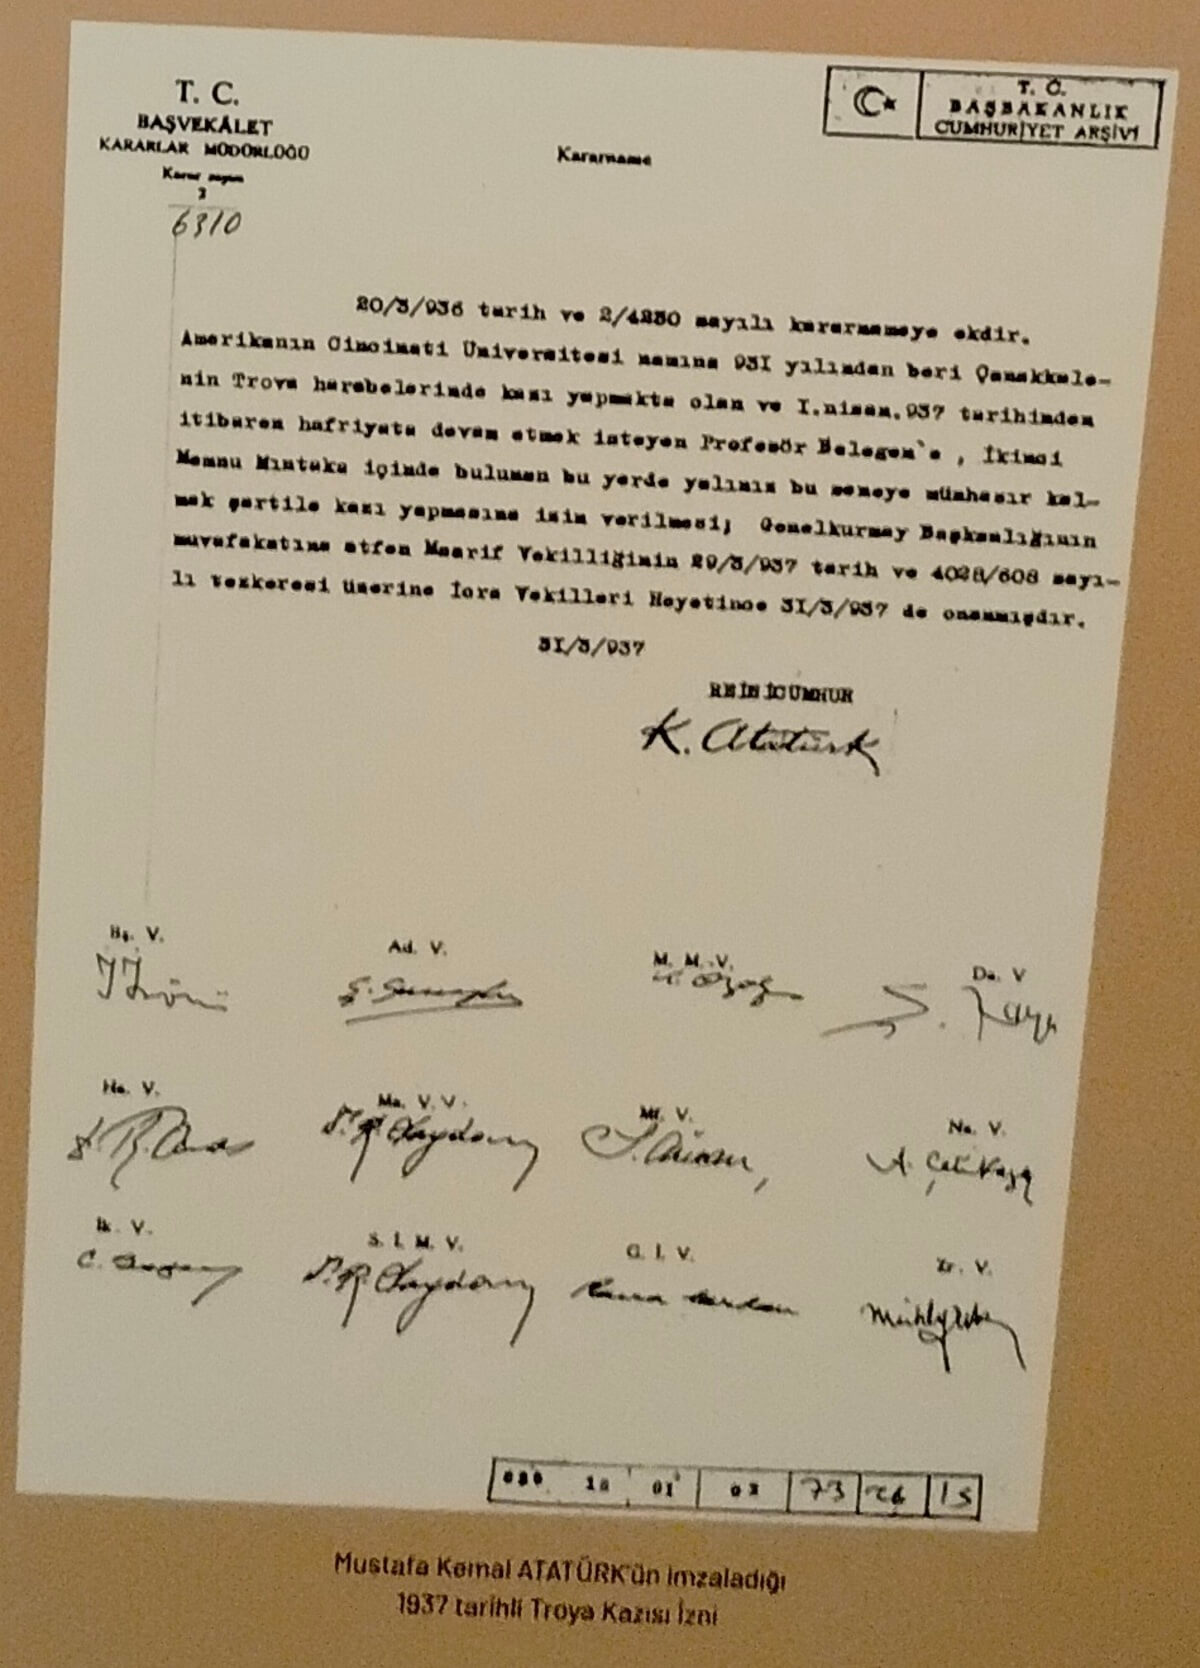 T. C.
BAŞVEKÂLET
KARARLAR MÜDÜRLÜĞÜ
Karar sayısı
2
6310
Kararname
T. C.
BAŞBAKANLIK
CUMHURİYET ARŞİVİ
20/3/936 tarih ve 2/4230 sayılı kararnameye ekdir.
Amerikanın Cincinati Üniversitesi namına 93I yılından beri Çanakkale-
nin Trova harabelerinde kazı yapmakta olan ve I.nisan.937 tarihinden
itibaren hafriyata devam etmek isteyen Profesör Belegen`e , İkinci
Memnu Mıntaka içinde bulunan bu yerde yalınız bu seneye münhasır kal-
mak şartile kazı yapmasına izin verilmesi; Genelkurmay Başkanlığının
muvafakatına atfen Maarif Vekilliğinin 29/3/937 tarih ve 4028/608 sayı-
lı tezkeresi üzerine İcra Vekilleri Heyetince 3I/3/937 de onanmışdır.
3I/3/937
REİSİCUMHUR
K. Atatürk
Bş. V.
Ad. V.
M. M. V.
Da. V
İ İnönü
Ş. Kaya
Ha. V.
Ma. V. V.
Mf. V.
Na. V.
A. Çetinkaya
Ik. V.
S. I. M. V.
G. I. V.
Zr. V.
Rana Tarhan
030 10 01 02 73 26 15
Mustafa Kemal ATATÜRK'ün imzaladığı
1937 tarihli Troya Kazısı İzni